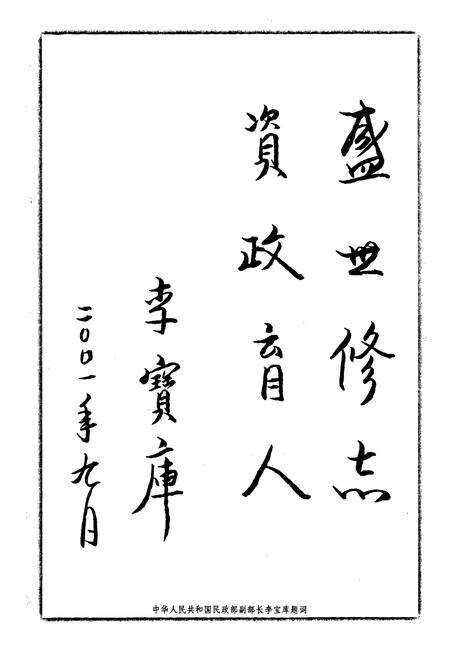 盛世修志
資政育人
李寶庫
二〇〇一年九月
中华人民共和国民政部副部长李宝库题词